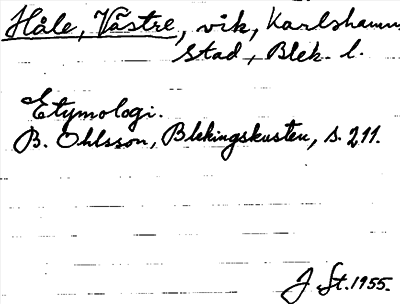 Håle, Västre, vik, Karlshamns
stad, Blek. l.
Etymologi.
B. Ohlsson, Blekingskusten, s. 211.
J St. 1955.